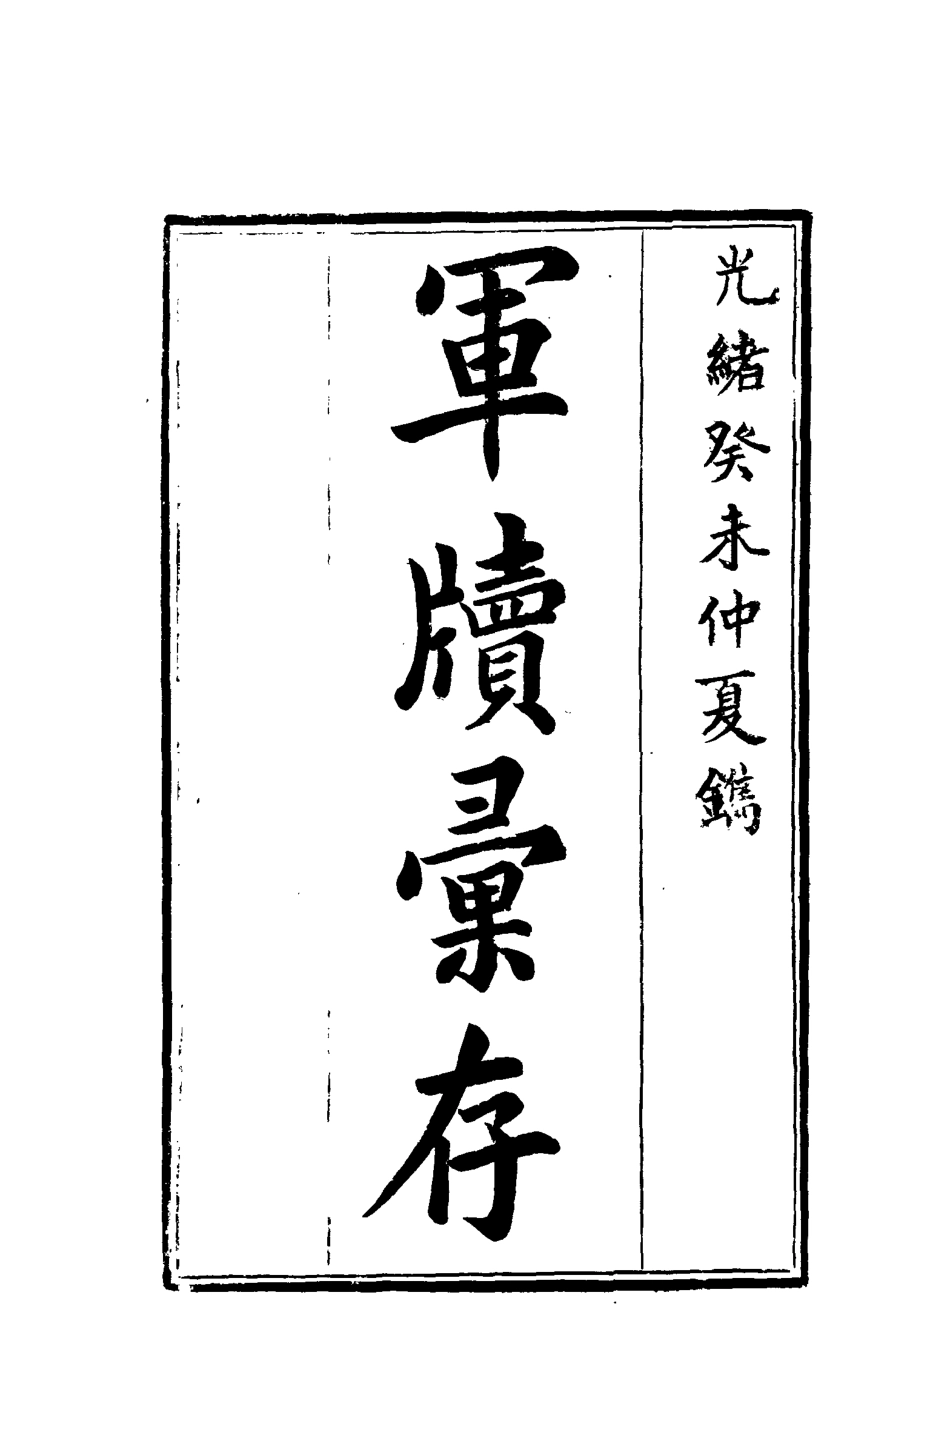 光緒癸未仲夏鐫
軍牘彙存